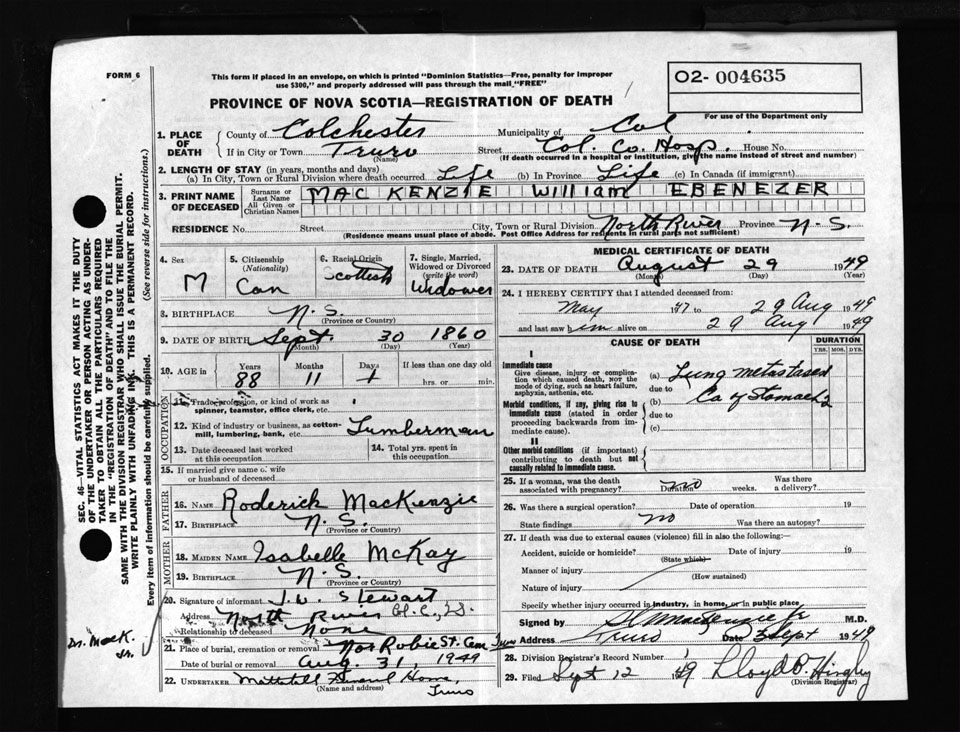 FORM 6
This form if placed in an envelope, on which is printed "Dominion Statistics—Free, penalty for improper
use $300," and properly addressed will pass through the mail "FREE"
02- 004635
For use of the Department only
PROVINCE OF NOVA SCOTIA—REGISTRATION OF DEATH
1. PLACE OF DEATH
County of Colchester Municipality of Col
If in City or Town Truro (Name) Street Col. Co. Hosp. House No.
(If death occurred in a hospital or institution, give the name instead of street and number)
2. LENGTH OF STAY (in years, months and days)
(a) In City, Town or Rural Division where death occurred Life (b) In Province Life (c) In Canada (if immigrant)
3. PRINT NAME OF DECEASED
Surname or Last Name
All Given or Christian Names
MAC KENZIE WILLIAM EBENEZER
RESIDENCE No. Street City, Town or Rural Division North River Province N-S.
(Residence means usual place of abode. Post Office Address for residents in rural parts not sufficient)
4. Sex
M
5. Citizenship (Nationality)
Can
6. Racial Origin
Scottish
7. Single, Married, Widowed or Divorced (write the word)
Widower
8. BIRTHPLACE N. S.
(Province or Country)
9. DATE OF BIRTH Sept. 30 1860
(Month) (Day) (Year)
10. AGE in Years Months Days If less than one day old
88 11 1 hrs. or min.
OCCUPATION
11. Trade, profession, or kind of work as
spinner, teamster, office clerk, etc.
12. Kind of industry or business, as cotton-
mill, lumbering, bank, etc. Lumberman
13. Date deceased last worked at this occupation
14. Total yrs. spent in this occupation
15. If married give name of wife
or husband of deceased
FATHER
16. Name Roderick MacKenzie
17. Birthplace N. S.
(Province or Country)
MOTHER
18. Maiden Name Isabelle McKay
19. Birthplace N. S.
(Province or Country)
20. Signature of informant J. W. Stewart
Address North River
Relationship to deceased None
21. Place of burial, cremation or removal Robie St. Cem. Truro
Date of burial or removal Aug. 31, 1949
22. UNDERTAKER Mattatall Funeral Home,
(Name and address) Truro
MEDICAL CERTIFICATE OF DEATH
23. DATE OF DEATH August 29 1949
(Month) (Day) (Year)
24. I HEREBY CERTIFY that I attended deceased from:
May 1947 to 29 Aug 1949
and last saw him alive on 29 Aug 1949
CAUSE OF DEATH
DURATION
YRS. MOS. DYS.
I
Immediate cause
Give disease, injury or complica-
tion which caused death, NOT the
mode of dying, such as heart failure,
asphyxia, asthenia, etc.
(a) Lung metastases
due to
Morbid conditions, if any, giving rise to
immediate cause (stated in order
proceeding backwards from im-
mediate cause).
(b) Ca of Stomach 2
due to
(c)
II
Other morbid conditions (if important)
contributing to death but not
causally related to immediate cause.
25. If a woman, was the death Was there
associated with pregnancy? no Duration weeks. a delivery?
26. Was there a surgical operation? Date of operation 19
State findings no Was there an autopsy?
27. If death was due to external causes (violence) fill in also the following:
Accident, suicide or homicide? Date of injury 19
(State which)
Manner of injury
(How sustained)
Nature of injury
Specify whether injury occurred in industry, in home, or in public place
Signed by MacKenzie Jr M.D.
Address Truro Date 3 Sept 1949
28. Division Registrar's Record Number
29. Filed Sept 12 49 Lloyd P. Hingley
(Division Registrar)
SEC. 46—VITAL STATISTICS ACT MAKES IT THE DUTY
OF THE UNDERTAKER OR PERSON ACTING AS UNDER-
TAKER TO OBTAIN ALL THE PARTICULARS REQUIRED
IN THE "REGISTRATION OF DEATH" AND TO FILE THE
SAME WITH THE DIVISION REGISTRAR WHO SHALL ISSUE THE BURIAL PERMIT.
WRITE PLAINLY WITH UNFADING INK. THIS IS A PERMANENT RECORD.
Every item of information should be carefully supplied. (See reverse side for instructions.)
Dr. MacK.
Jr.